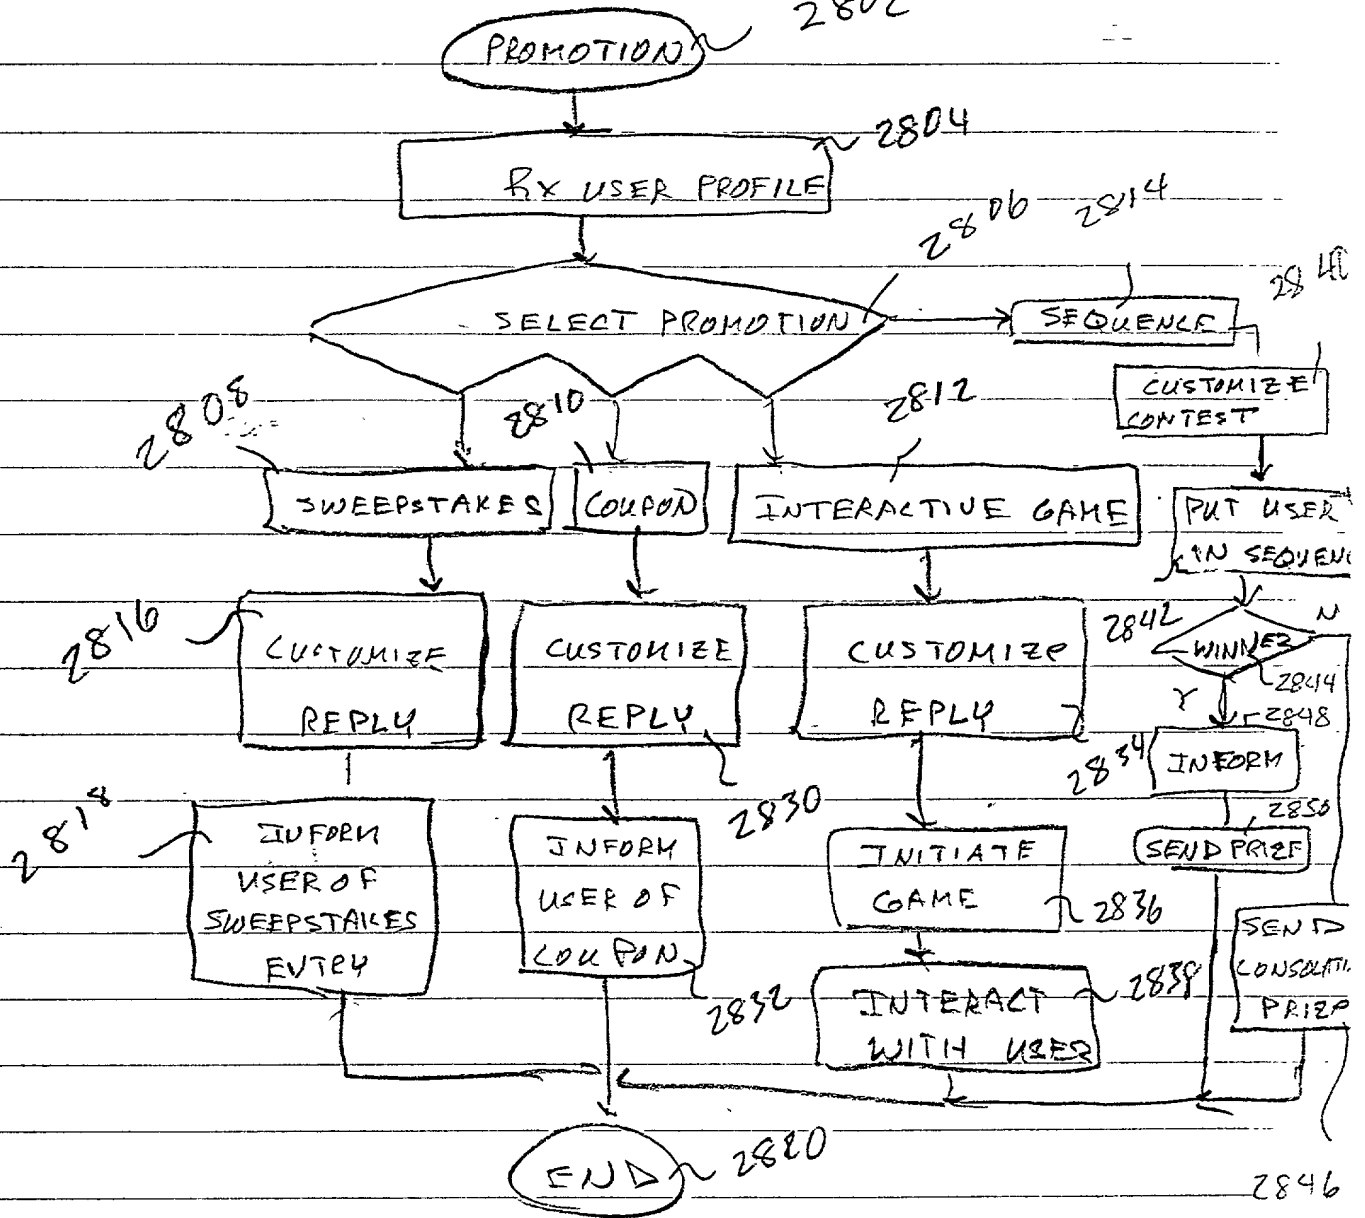 2802
PROMOTION
2804
Rx USER PROFILE
2806
2814
SELECT PROMOTION
SEQUENCE
2840
CUSTOMIZE
CONTEST
2808
2810
2812
SWEEPSTAKES
COUPON
INTERACTIVE GAME
PUT USER
IN SEQUENC
2816
CUSTOMIZE
REPLY
CUSTOMIZE
REPLY
2830
CUSTOMIZE
REPLY
2834
2842
N
WINNER
2844
Y
2848
INFORM
2850
SEND PRIZE
2818
INFORM
USER OF
SWEEPSTAKES
ENTRY
INFORM
USER OF
COUPON
2832
INITIATE
GAME
2836
INTERACT
WITH USER
2838
SEND
CONSOLATI
PRIZE
2846
END
2820